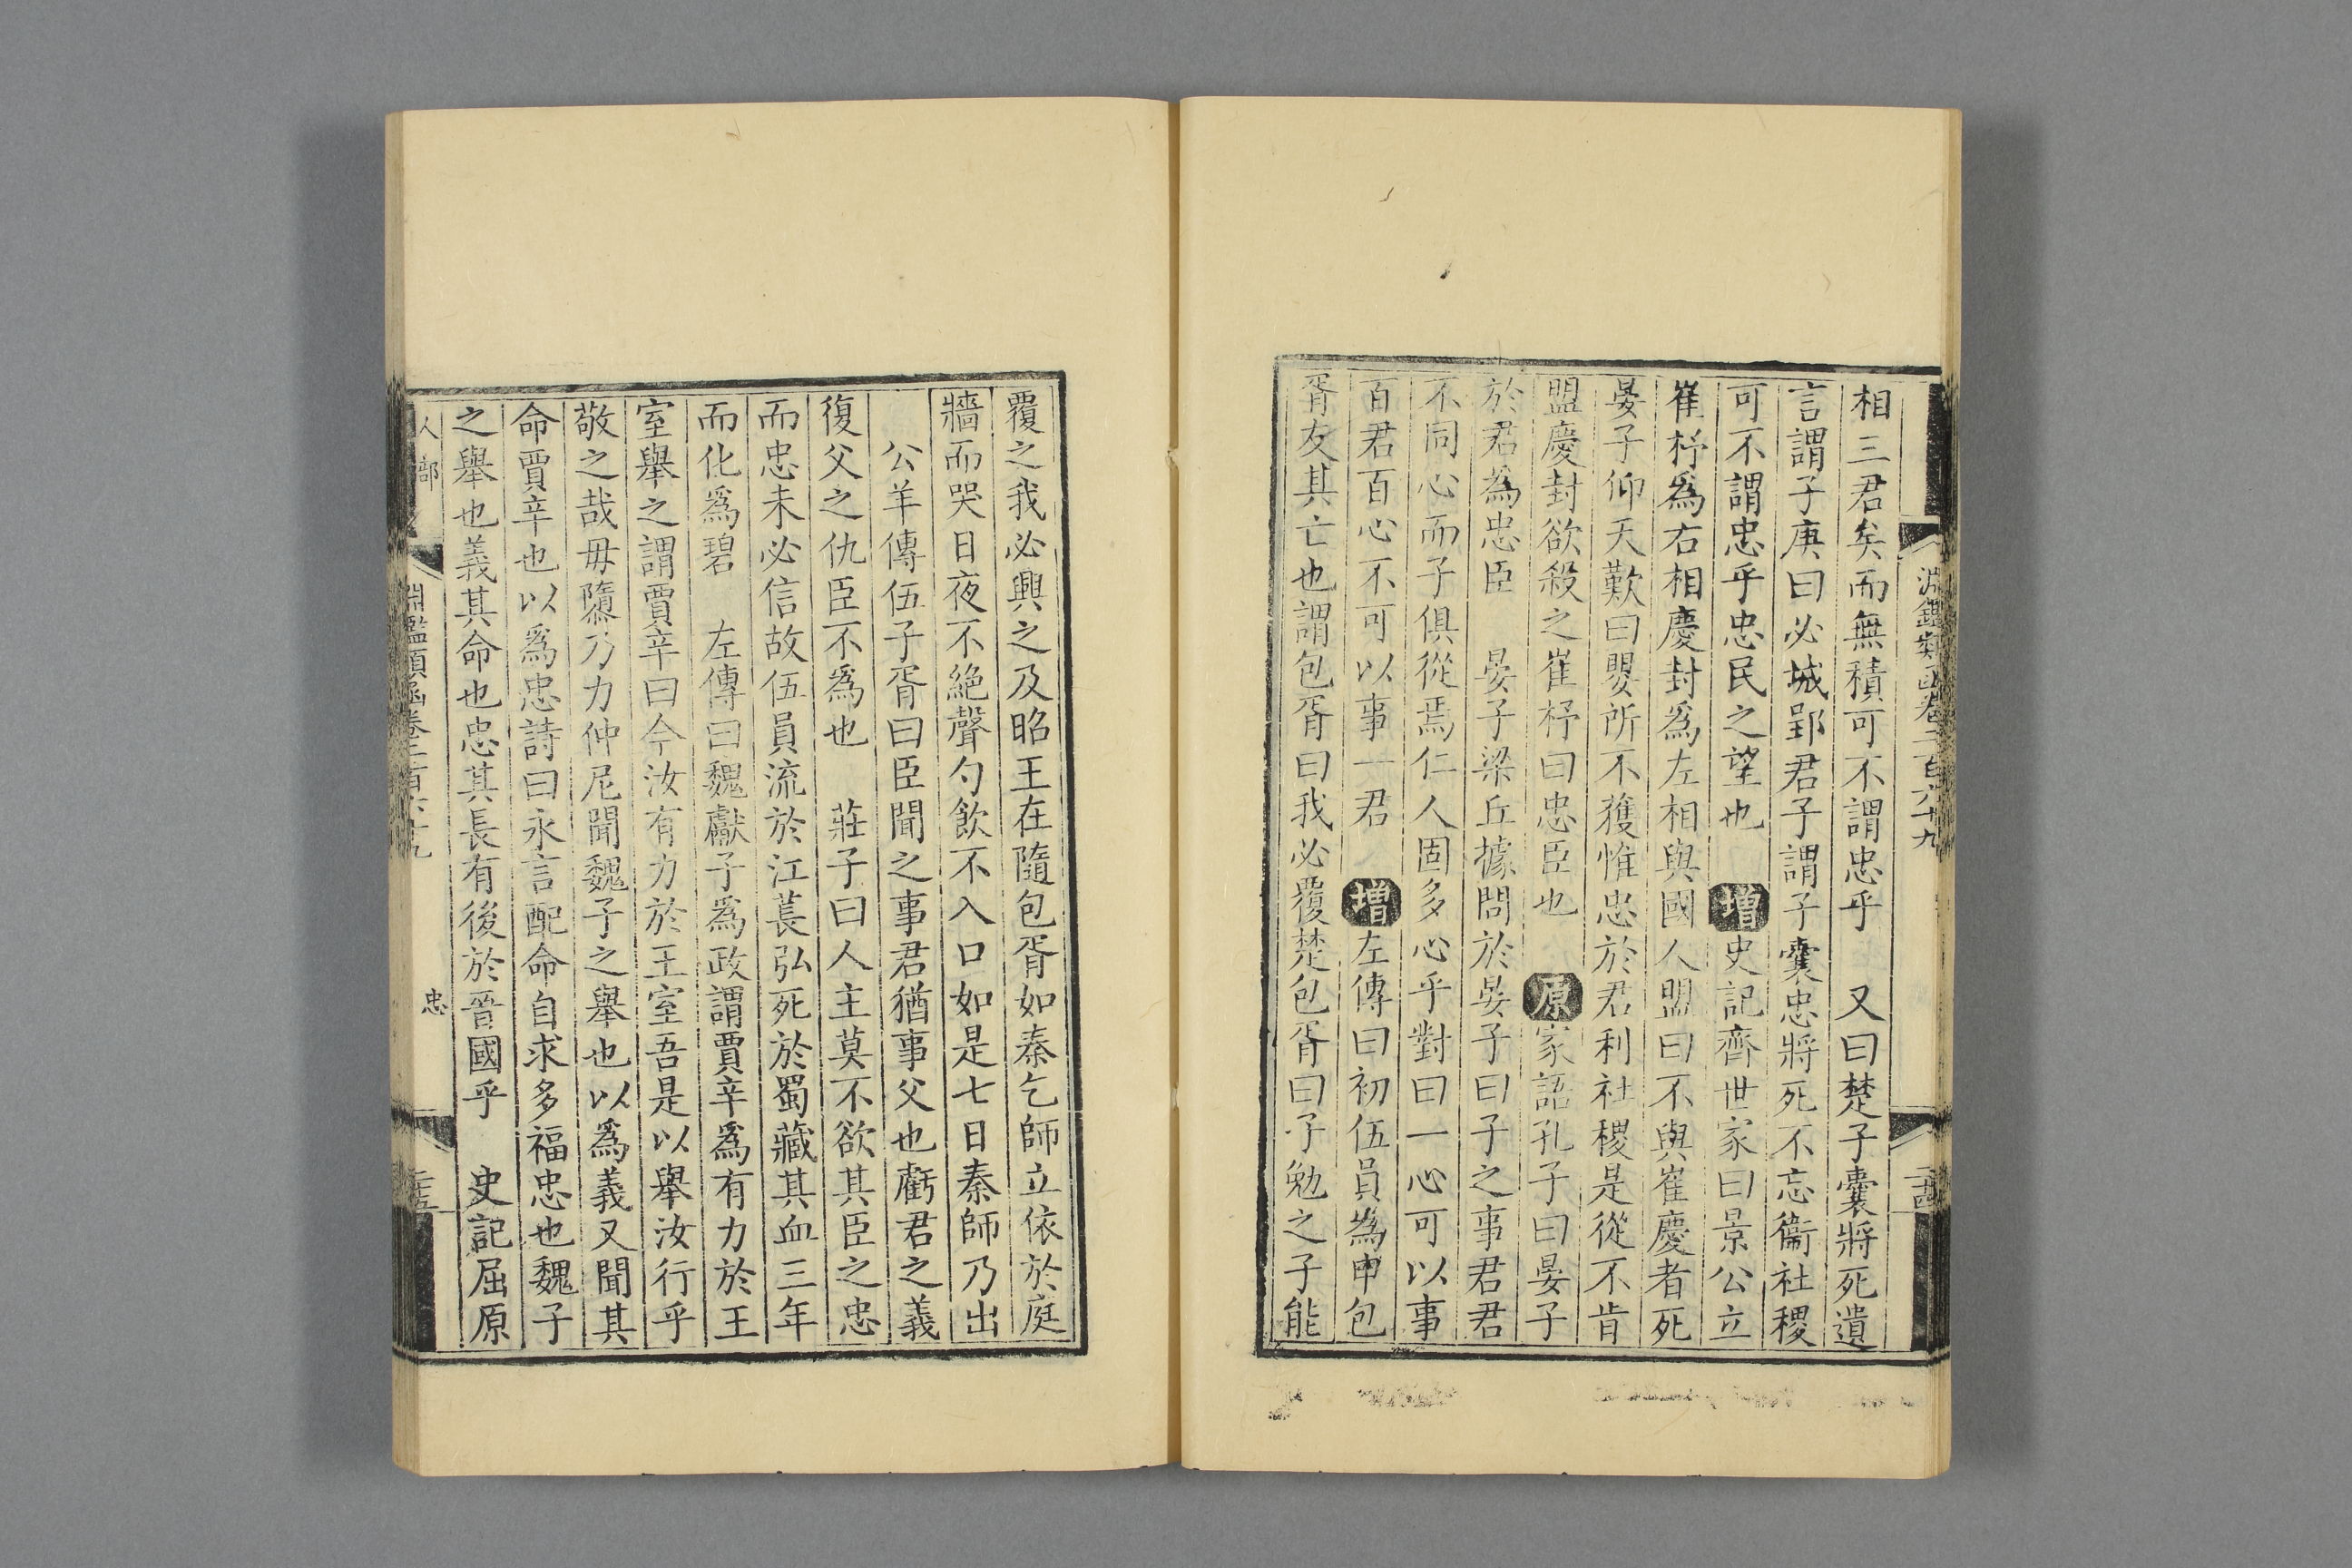 淵鑑類函卷二百六十九
二十四
相三君矣而無積可不謂忠乎　又曰楚子囊將死遺
言謂子庚曰必城郢君子謂子囊忠將死不忘衞社稷
可不謂忠乎忠民之望也　增史記齊世家曰景公立
崔杼爲右相慶封爲左相與國人盟曰不與崔慶者死
晏子仰天歎曰嬰所不獲惟忠於君利社稷是從不肯
盟慶封欲殺之崔杼曰忠臣也　原家語孔子曰晏子
於君爲忠臣　晏子梁丘據問於晏子曰子之事君君
不同心而子俱從焉仁人固多心乎對曰一心可以事
百君百心不可以事一君　增左傳曰初伍員爲申包
胥友其亡也謂包胥曰我必覆楚包胥曰子勉之子能
覆之我必興之及昭王在隨包胥如秦乞師立依於庭
牆而哭日夜不絶聲勺飮不入口如是七日秦師乃出
公羊傳伍子胥曰臣聞之事君猶事父也虧君之義
復父之仇臣不爲也　莊子曰人主莫不欲其臣之忠
而忠未必信故伍員流於江萇弘死於蜀藏其血三年
而化爲碧　左傳曰魏獻子爲政謂賈辛爲有力於王
室舉之謂賈辛曰今汝有力於王室吾是以舉汝行乎
敬之哉毋隳乃力仲尼聞魏子之舉也以爲義又聞其
命賈辛也以爲忠詩曰永言配命自求多福忠也魏子
之舉也義其命也忠其長有後於晉國乎　史記屈原
人部
淵鑑類函卷二百六十九
忠
二十五